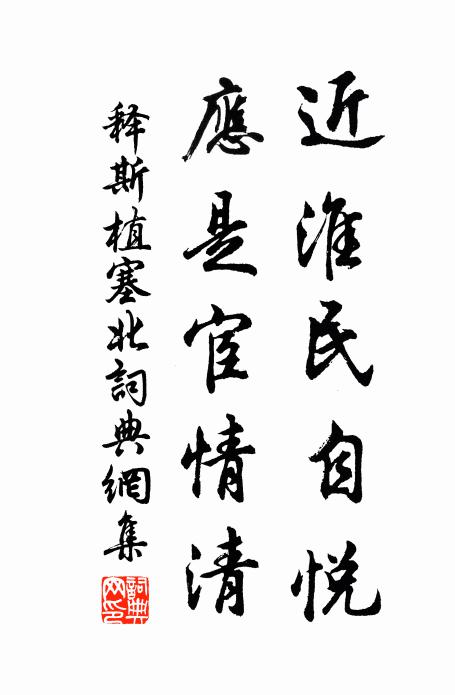 近淮民自悦
應是宦情清
释斯植塞北詞典網集
詞典网印